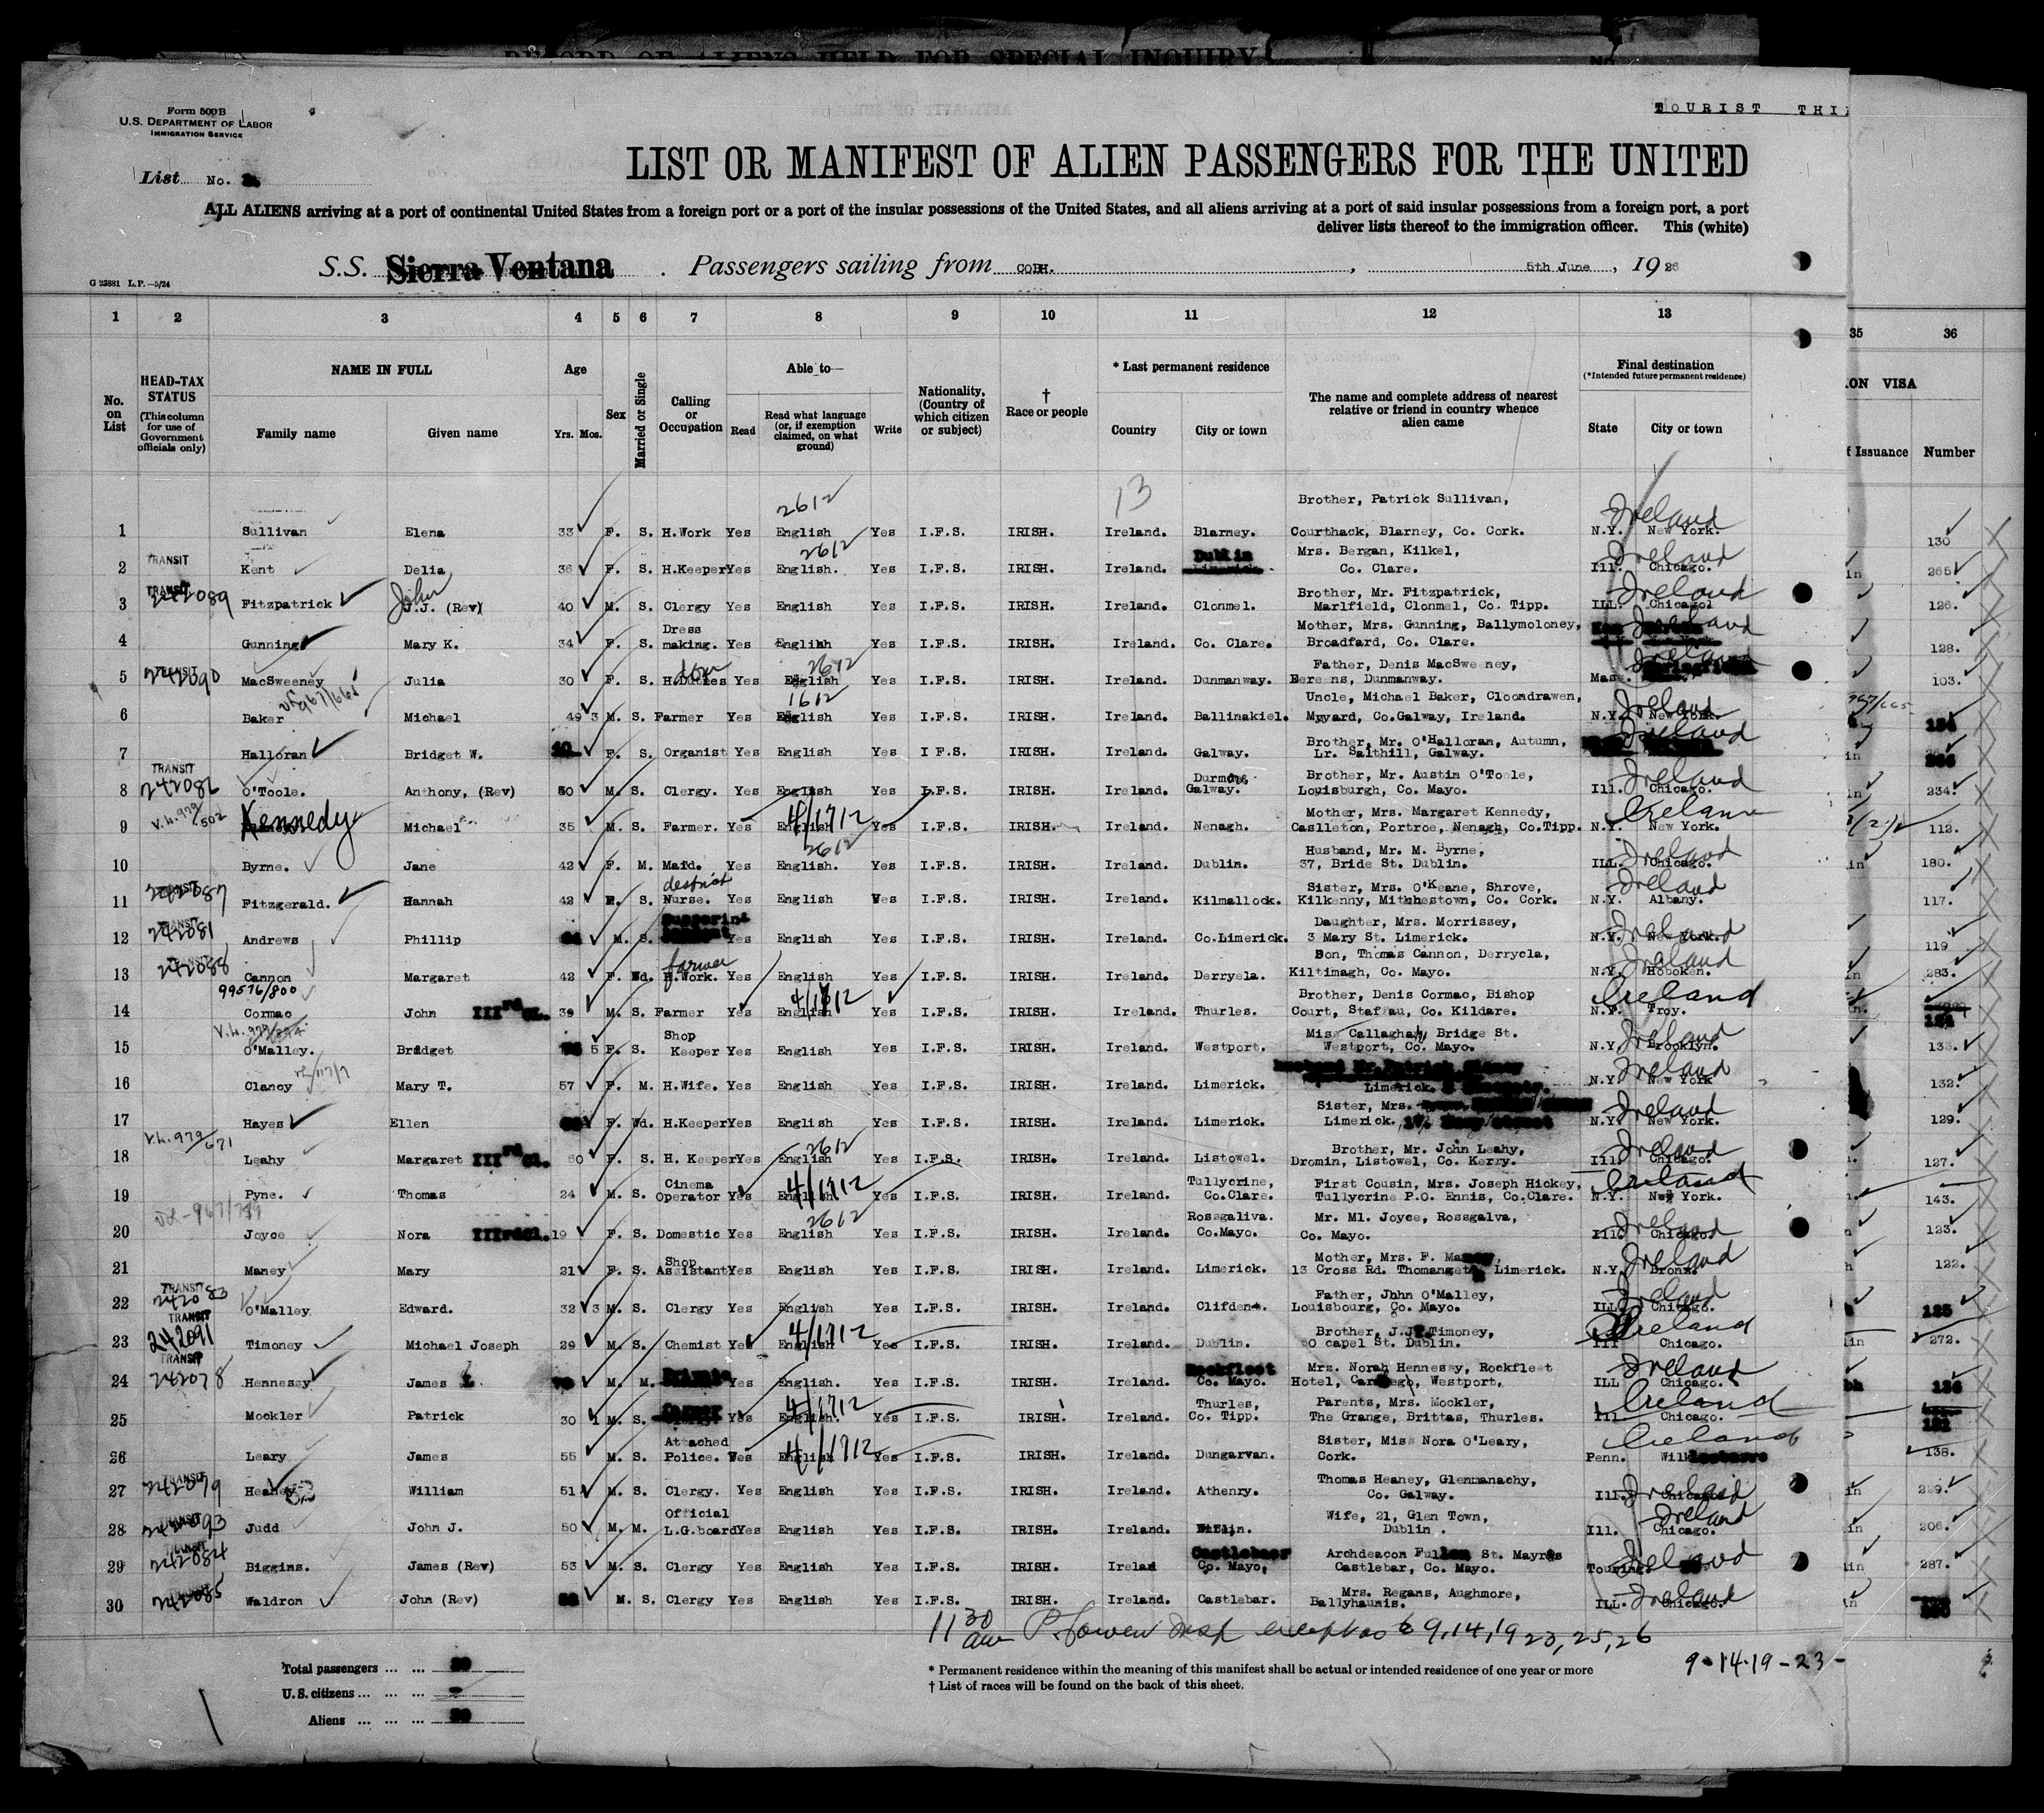 RECORD OF ALIENS HELD FOR SPECIAL INQUIRY
No.
Form 500B
U.S. DEPARTMENT OF LABOR
IMMIGRATION SERVICE
TOURIST THI
List No.
LIST OR MANIFEST OF ALIEN PASSENGERS FOR THE UNITED
ALL ALIENS arriving at a port of continental United States from a foreign port or a port of the insular possessions of the United States, and all aliens arriving at a port of said insular possessions from a foreign port, a port
deliver lists thereof to the immigration officer. This (white)
S.S. Sierra Ventana. Passengers sailing from COBH., 5th June, 1926
G 23881 L.P.—5/24
1 2 3 4 5 6 7 8 9 10 11 12 13 35 36
No. on List
HEAD-TAX STATUS (This column for use of Government officials only)
NAME IN FULL
Family name Given name
Age Yrs. Mos.
Sex
Married or Single
Calling or Occupation
Able to—
Read Read what language (or, if exemption claimed, on what ground) Write
Nationality, (Country of which citizen or subject)
† Race or people
* Last permanent residence
Country City or town
The name and complete address of nearest relative or friend in country whence alien came
Final destination
(*Intended future permanent residence)
State City or town
ION VISA
f Issuance Number
13
1 Sullivan Elena 33 F. S. H.Work Yes English 2612 Yes I.F.S. IRISH. Ireland. Blarney. Brother, Patrick Sullivan, Courthack, Blarney, Co. Cork. N.Y. New York. Ireland 130
2 TRANSIT Kent Delia 36 F. S. H.Keeper Yes English. 2612 Yes I.F.S. IRISH. Ireland. Dublin Mrs. Bergan, Kilkel, Co. Clare. Ill. Chicago. Ireland 265
3 TRANSIT 242089 Fitzpatrick John J.J. (Rev) 40 M. S. Clergy Yes English Yes I.F.S. IRISH. Ireland. Clonmel. Brother, Mr. Fitzpatrick, Marlfield, Clonmel, Co. Tipp. ILL. Chicago. Ireland 126.
4 Gunning Mary K. 34 F. S. Dress making. Yes English Yes I.F.S. IRISH. Ireland. Co. Clare. Mother, Mrs. Gunning, Ballymoloney, Broadfard, Co. Clare. Ireland 128.
5 TRANSIT 242090 MacSweeney Julia 30 F. S. H.Duties Yes English 2612 Yes I.F.S. IRISH. Ireland. Dunmanway. Father, Denis MacSweeney, Derens, Dunmanway. Mass. Ireland 103.
6 Baker Michael 49 3 M. S. Farmer Yes English 1612 Yes I.F.S. IRISH. Ireland. Ballinakiel. Uncle, Michael Baker, Cloondrawen, Myyard, Co.Galway, Ireland. N.Y. New York. Ireland
7 Halloran Bridget W. F. S. Organist Yes English Yes I F.S. IRISH. Ireland. Galway. Brother, Mr. O'Halloran, Autumn, Lr. Salthill, Galway. Ireland
8 TRANSIT 242082 O'Toole. Anthony, (Rev) 50 M. S. Clergy. Yes English Yes I.F.S. IRISH. Ireland. Galway. Brother, Mr. Austin O'Toole, Louisburgh, Co. Mayo. Ill. Chicago. Ireland 234.
9 V.L. 979/502 Kennedy Michael 35 M. S. Farmer. Yes English 4/1712 Yes I.F.S. IRISH. Ireland. Nenagh. Mother, Mrs. Margaret Kennedy, Caslleton, Portroe, Nenagh, Co.Tipp. N.Y. New York. Ireland 112.
10 Byrne. Jane 42 F. M. Maid. Yes English. 2612 Yes I.F.S. IRISH. Ireland. Dublin. Husband, Mr. M. Byrne, 37, Bride St. Dublin. ILL. Chicago. Ireland 180.
11 TRANSIT 242087 Fitzgerald. Hannah 42 F. S. district Nurse. Yes English Yes I.F.S. IRISH. Ireland. Kilmallock. Sister, Mrs. O'Keane, Shrove, Kilkenny, Mitchestown, Co. Cork. N.Y. Albany. Ireland 117.
12 TRANSIT 242081 Andrews Phillip M. S. Yes English Yes I.F.S. IRISH. Ireland. Co.Limerick. Daughter, Mrs. Morrissey, 3 Mary St. Limerick. N.Y. New York. Ireland 119
13 TRANSIT 242088 Cannon Margaret 42 F. Wd. H.Work. farmer Yes English Yes I.F.S. IRISH. Ireland. Derryela. Son, Thomas Cannon, Derrycla, Kiltimagh, Co. Mayo. N.Y. Hoboken. Ireland 283.
14 99576/800 Cormac John IIIrd CL. 39 M. S. Farmer Yes English 4/1712 Yes I.F.S. IRISH. Ireland. Thurles. Brother, Denis Cormac, Bishop Court, Staffau, Co. Kildare. N.Y. Troy. Ireland
15 O'Malley. Bridget 5 F. S. Shop Keeper Yes English Yes I.F.S. IRISH. Ireland. Westport. Miss Callaghan, Bridge St. Westport, Co. Mayo. N.Y. Brooklyn. Ireland 133.
16 Clancy Mary T. 57 F. M. H.Wife. Yes English Yes I.F.S. IRISH. Ireland. Limerick. Limerick. N.Y. New York Ireland 132.
17 Hayes Ellen F. Wd. H.Keeper Yes English Yes I.F.S. IRISH. Ireland. Limerick. Sister, Mrs. Limerick. N.Y. New York. Ireland 129.
18 V.L. 979/671 Leahy Margaret IIIrd Cl. 50 F. S. H. Keeper Yes English 2612 Yes I.F.S. IRISH. Ireland. Listowel. Brother, Mr. John Leahy, Dromin, Listowel, Co. Kerry. Ill. Chicago. Ireland 127.
19 Pyne. Thomas 24 M. S. Cinema Operator Yes English 4/1712 Yes I.F.S. IRISH. Ireland. Tullycrine, Co.Clare. First Cousin, Mrs. Joseph Hickey, Tullycrine P.O. Ennis, Co.Clare. N.Y. New York. Ireland 143.
20 Joyce Nora IIIrdCl. 19 F. S. Domestic Yes English 2612 Yes I.F.S. IRISH. Ireland. Rossgaliva. Co.Mayo. Mr. Ml. Joyce, Rossgalva, Co. Mayo. Ill. Chicago. Ireland 123.
21 Maney Mary 21 F. S. Shop Assistant Yes English Yes I.F.S. IRISH. Ireland. Limerick. Mother, Mrs. F. 13 Cross Rd. Limerick. N.Y. Bronx. Ireland 122.
22 TRANSIT 242083 O'Malley Edward. 32 3 M. S. Clergy Yes English Yes I.F.S. IRISH. Ireland. Clifden. Father, John O'Malley, Louisbourg, Co. Mayo. ILL. Chicago. Ireland 125
23 TRANSIT 242091 Timoney Michael Joseph 29 M. S. Chemist Yes English 4/1712 Yes I.F.S. IRISH. Ireland. Dublin. Brother, J.J. Timoney, 50 capel St. Dublin. Ill Chicago. Ireland 272.
24 TRANSIT 242078 Hennessy James M. M. Yes English. Yes I.F.S. IRISH. Ireland. Rockfleet Co. Mayo. Mrs. Norah Hennessy, Rockfleet Hotel, Westport. ILL Chicago. Ireland 136
25 Mockler Patrick 30 1 M. S. Yes English. 4/1712 Yes I.F.S. IRISH. Ireland. Thurles, Co. Tipp. Parents, Mrs. Mockler, The Grange, Brittas, Thurles. Ill. Chicago. Ireland
26 Leary James 55 M. S. Attached Police. Yes English 4/1712 Yes I.F.S. IRISH. Ireland. Dungarvan. Sister, Miss Nora O'Leary, Cork. Penn. Ireland 138.
27 TRANSIT 242079 Heaney William 51 M. S. Clergy. Yes English Yes I.F.S. IRISH. Ireland. Athenry. Thomas Heaney, Glenmanachy, Co. Galway. Ill. Chicago. Ireland 229.
28 TRANSIT 242093 Judd John J. 50 M. M. Official L.G.board Yes English Yes I.F.S. IRISH. Ireland. Wife, 21, Glen Town, Dublin. Ill. Chicago. Ireland 206.
29 TRANSIT 242084 Biggins. James (Rev) 53 M. S. Clergy Yes English Yes I.F.S. IRISH. Irelan Castlebaer Co. Mayo, Archdeacon St. Castlebar, Co. Mayo. Touring. Ireland 287.
30 242085 Waldron John (Rev) M. S. Clergy Yes English Yes I.F.S. IRISH. Ireland. Castlebar. Mrs. Regans, Aughmore, Ballyhaunis. ILL. Chicago. Ireland
11 30 am 9,14,19 23, 25, 26
Total passengers ... ... 30
U.S. citizens ... ... -
Aliens ... ... 30
* Permanent residence within the meaning of this manifest shall be actual or intended residence of one year or more
† List of races will be found on the back of this sheet.
9-14-19-23-